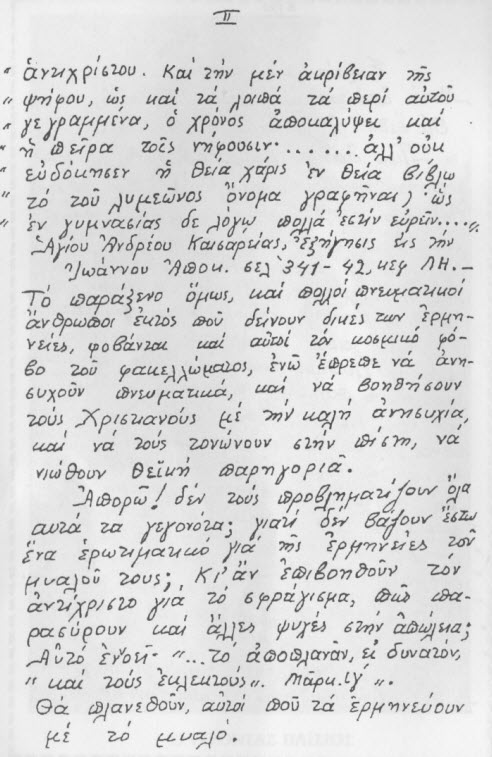 II
„ ἀντιχρίστου. Καί τήν μέν ἀκρίβειαν τῆς
„ ψήφου, ὡς καί τά λοιπά τά περί αὐτοῦ
„ γεγραμμένα, ὁ χρόνος ἀποκαλύψει καί
„ ἡ πεῖρα τοῖς νήφουσιν........ἀλλ' οὐκ
„ εὐδόκησεν ἡ θεία χάρις ἐν θεία βίβλω
„ τό τοῦ λυμεῶνος ὄνομα γραφῆναι) ὡς
„ ἐν γυμνασίας δε λόγω πολλά ἐστίν εὑρεῖν....„
Ἁγίου Ἀνδρέου Καισαρείας, Ἐξήγησις εἰς τήν
Ἰωάννου Ἀποκ. σελ 341-42, κεφ ΛΗ.—
Τό παράξενο ὅμως, καί πολλοί πνευματικοί
ἄνθρωποι ἐκτός πού δείνουν δικές των ἑρμη-
νείες, φοβάνται καί αὐτοί τόν κοσμικό φό-
βο τοῦ φακελλώματος, ἐνῶ ἔπρεπε νά ἀνη-
συχοῦν πνευματικά, καί νά βοηθήσουν
τούς Χριστιανούς μέ τήν καλή ἀνησυχία,
καί νά τούς τονώνουν στήν πίστη, νά
νιώθουν θεϊκή παρηγοριά.
Ἀπορῶ! δέν τούς προβληματίζουν ὅλα
αυτά τα γεγονότα; γιατί δέν βάζουν ἔστω
ἕνα ἐρωτιματικό γιά τῆς ἑρμηνεῖες τοῦ
μυαλοῦ τους; Κι' ἄν ἐπιβοηθοῦν τόν
ἀντίχριστο γιά τό σφράγισμα, πῶς πα-
ρασύρουν καί ἄλλες ψυχές στήν ἀπώλεια;
Αὐτό ἐνοεῖ· „...τό ἀποπλανᾶν, εἰ δυνατόν,
„ καί τούς ἐκλεκτούς„. Μάρκ. ιγ „.
Θά πλανεθοῦν, αὐτοί πού τά ἑρμηνεύουν
μέ τό μυαλό.